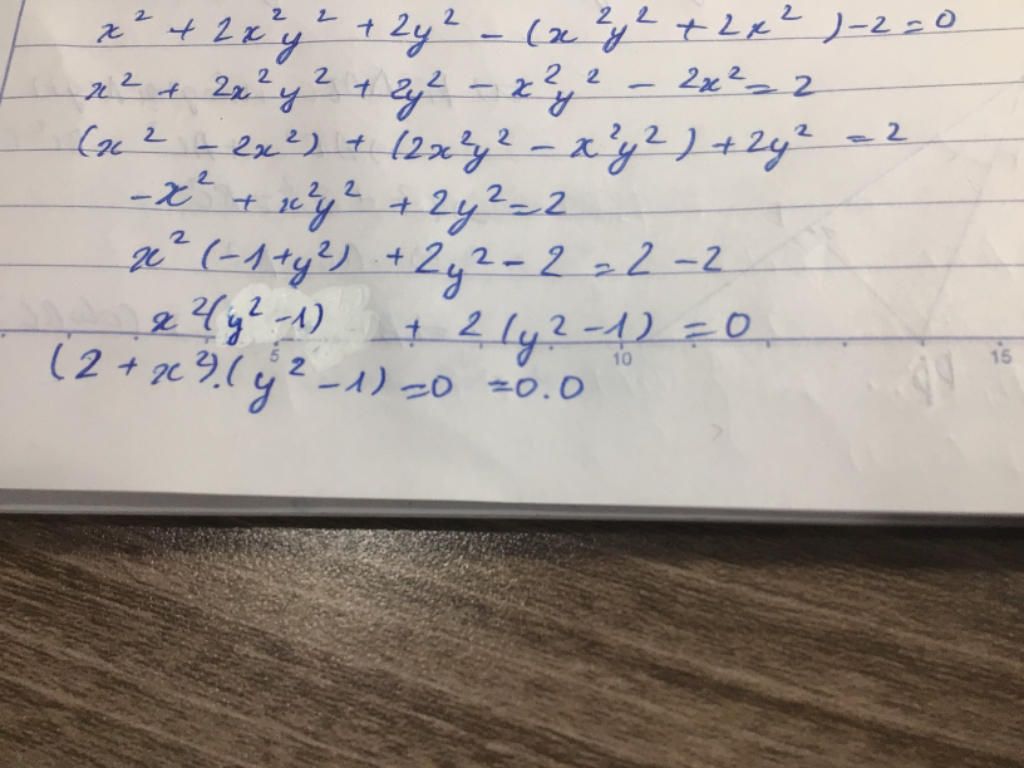 x² + 2x²y² + 2y² - (x²y² + 2x²) - 2 = 0
x² + 2x²y² + 2y² - x²y² - 2x² = 2
(x² - 2x²) + (2x²y² - x²y²) + 2y² = 2
-x² + x²y² + 2y² = 2
x² (-1 + y²) + 2y² - 2 = 2 - 2
x²(y² - 1) + 2(y² - 1) = 0
5 10 15
(2 + x²).(y² - 1) = 0 = 0.0